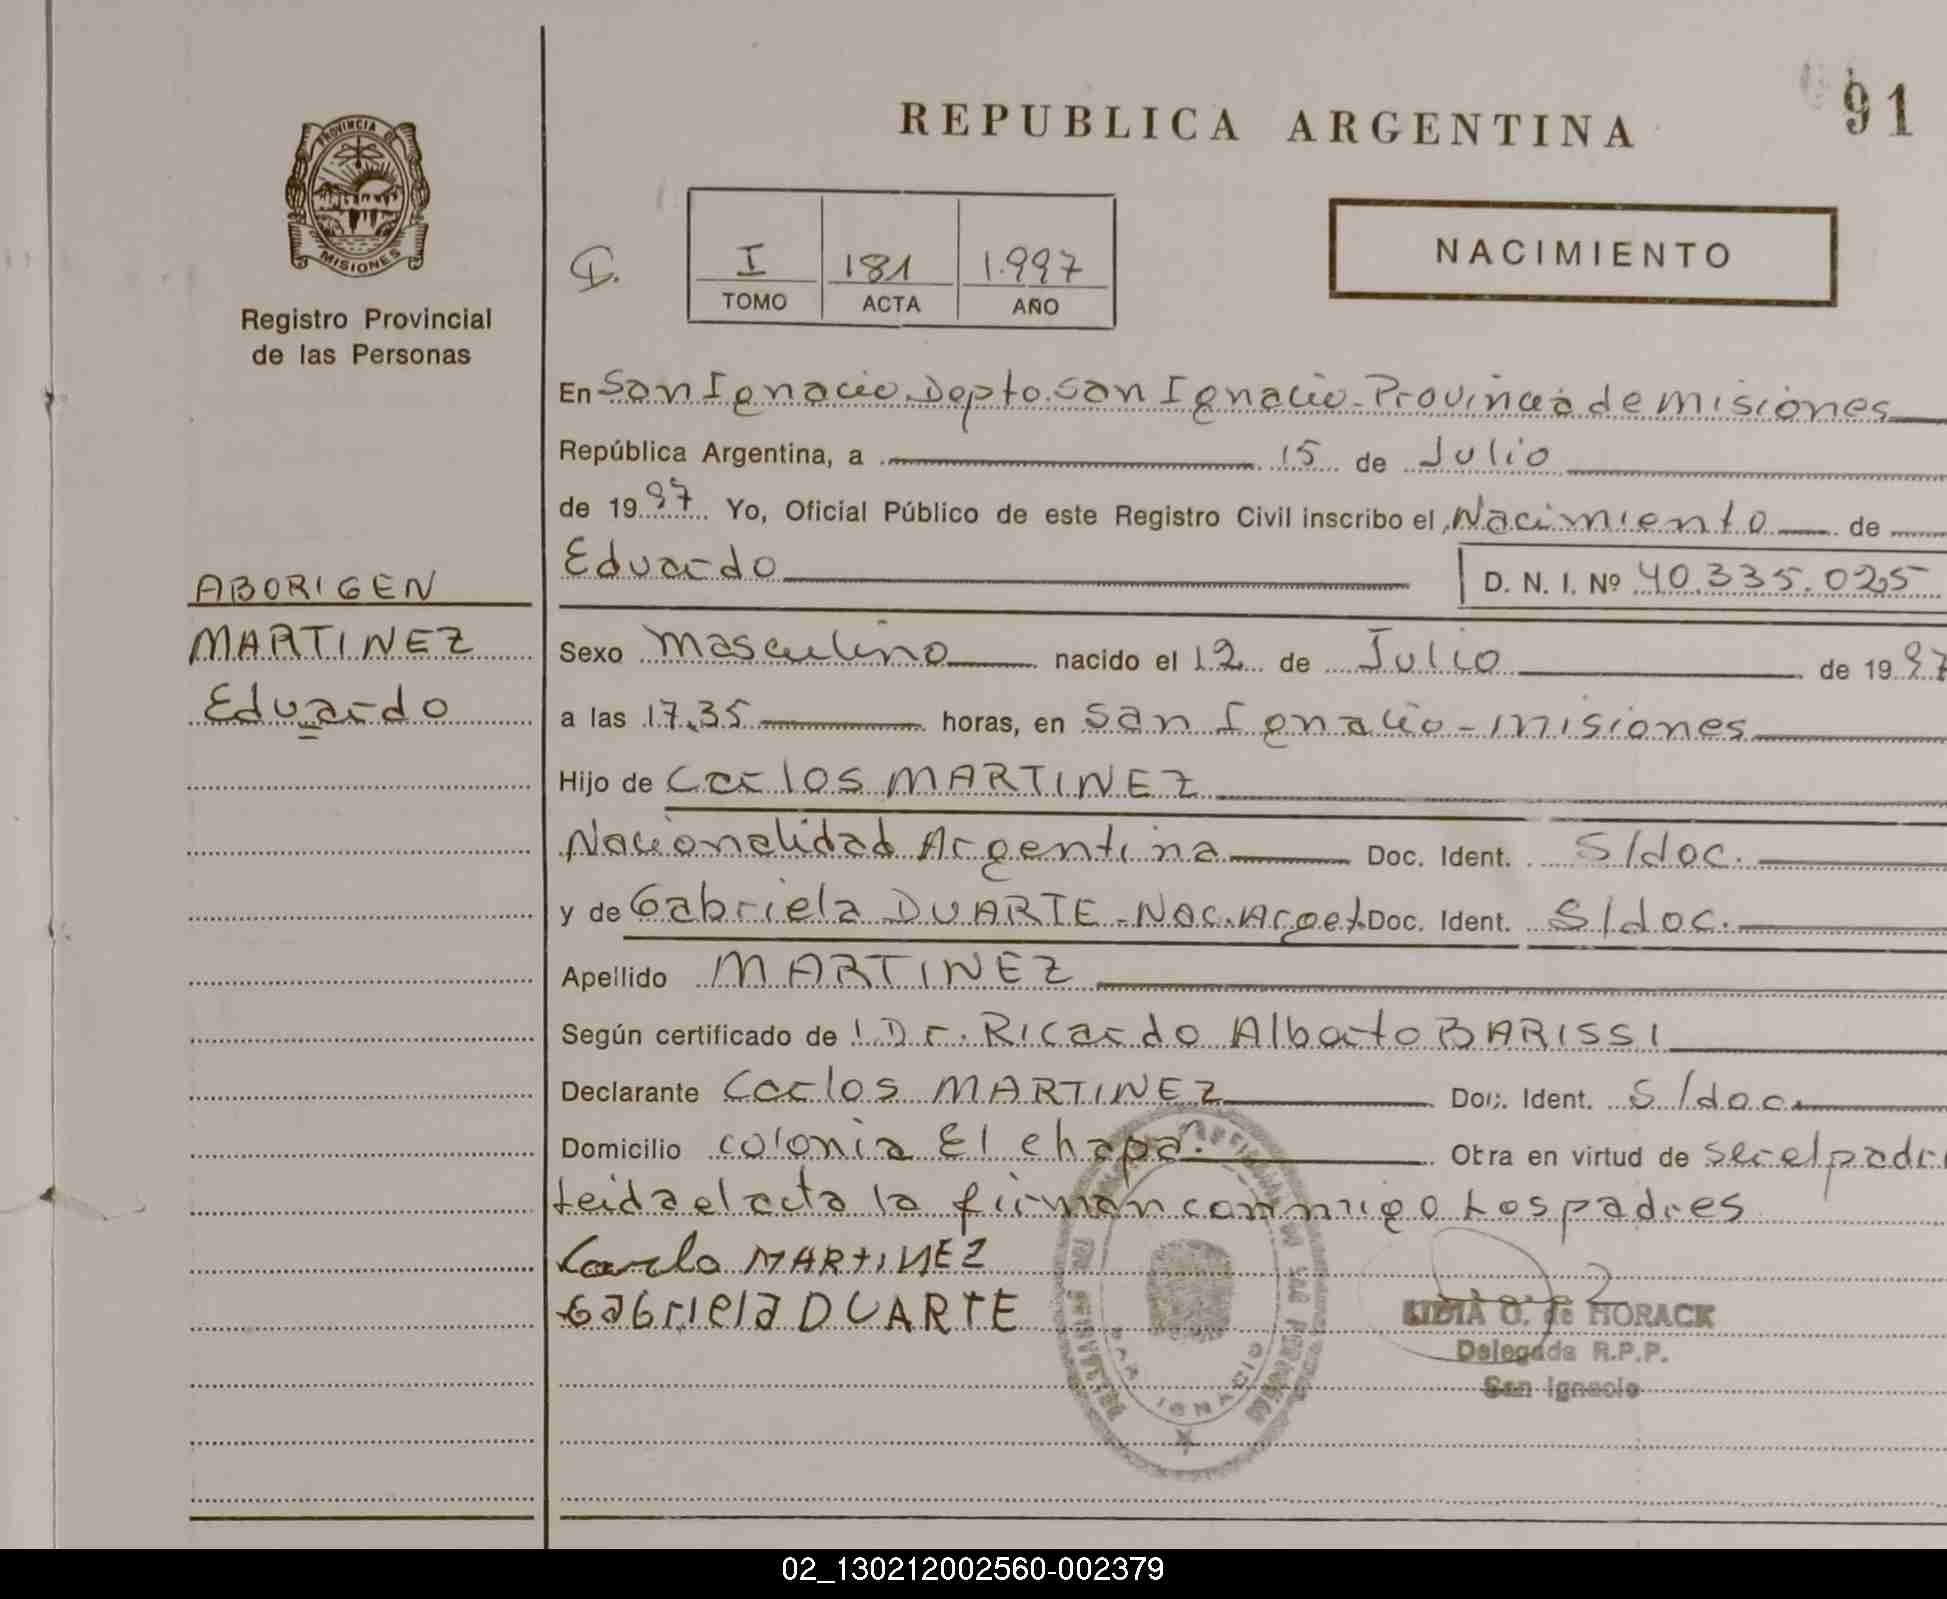 REPUBLICA ARGENTINA
91
PROVINCIA DE
MISIONES
Registro Provincial
de las Personas
I 181 1.997
TOMO ACTA AÑO
NACIMIENTO
En San Ignacio Depto. San Ignacio - Provincia de Misiones
República Argentina, a 15 de Julio
de 1997 Yo, Oficial Público de este Registro Civil inscribo el Nacimiento de
Eduardo D. N. I. Nº 40.335.025
ABORIGEN
MARTINEZ
Eduardo
Sexo Masculino nacido el 12 de Julio de 1997
a las 17.35 horas, en San Ignacio - Misiones
Hijo de Carlos MARTINEZ
Nacionalidad Argentina Doc. Ident. S/doc.
y de Gabriela DUARTE - Nac. Arget. Doc. Ident. S/doc.
Apellido MARTINEZ
Según certificado de l Dr. Ricardo Alberto BARISSI
Declarante Carlos MARTINEZ Doc. Ident. S/doc.
Domicilio colonia El chapa. Obra en virtud de ser el padre
Leida el acta la firman conmigo Los padres
Carlo MARTINEZ
Gabriela DUARTE
SAN IGNACIO
LIDIA O. de HORACK
Delegada R.P.P.
San Ignacio
02_130212002560-002379